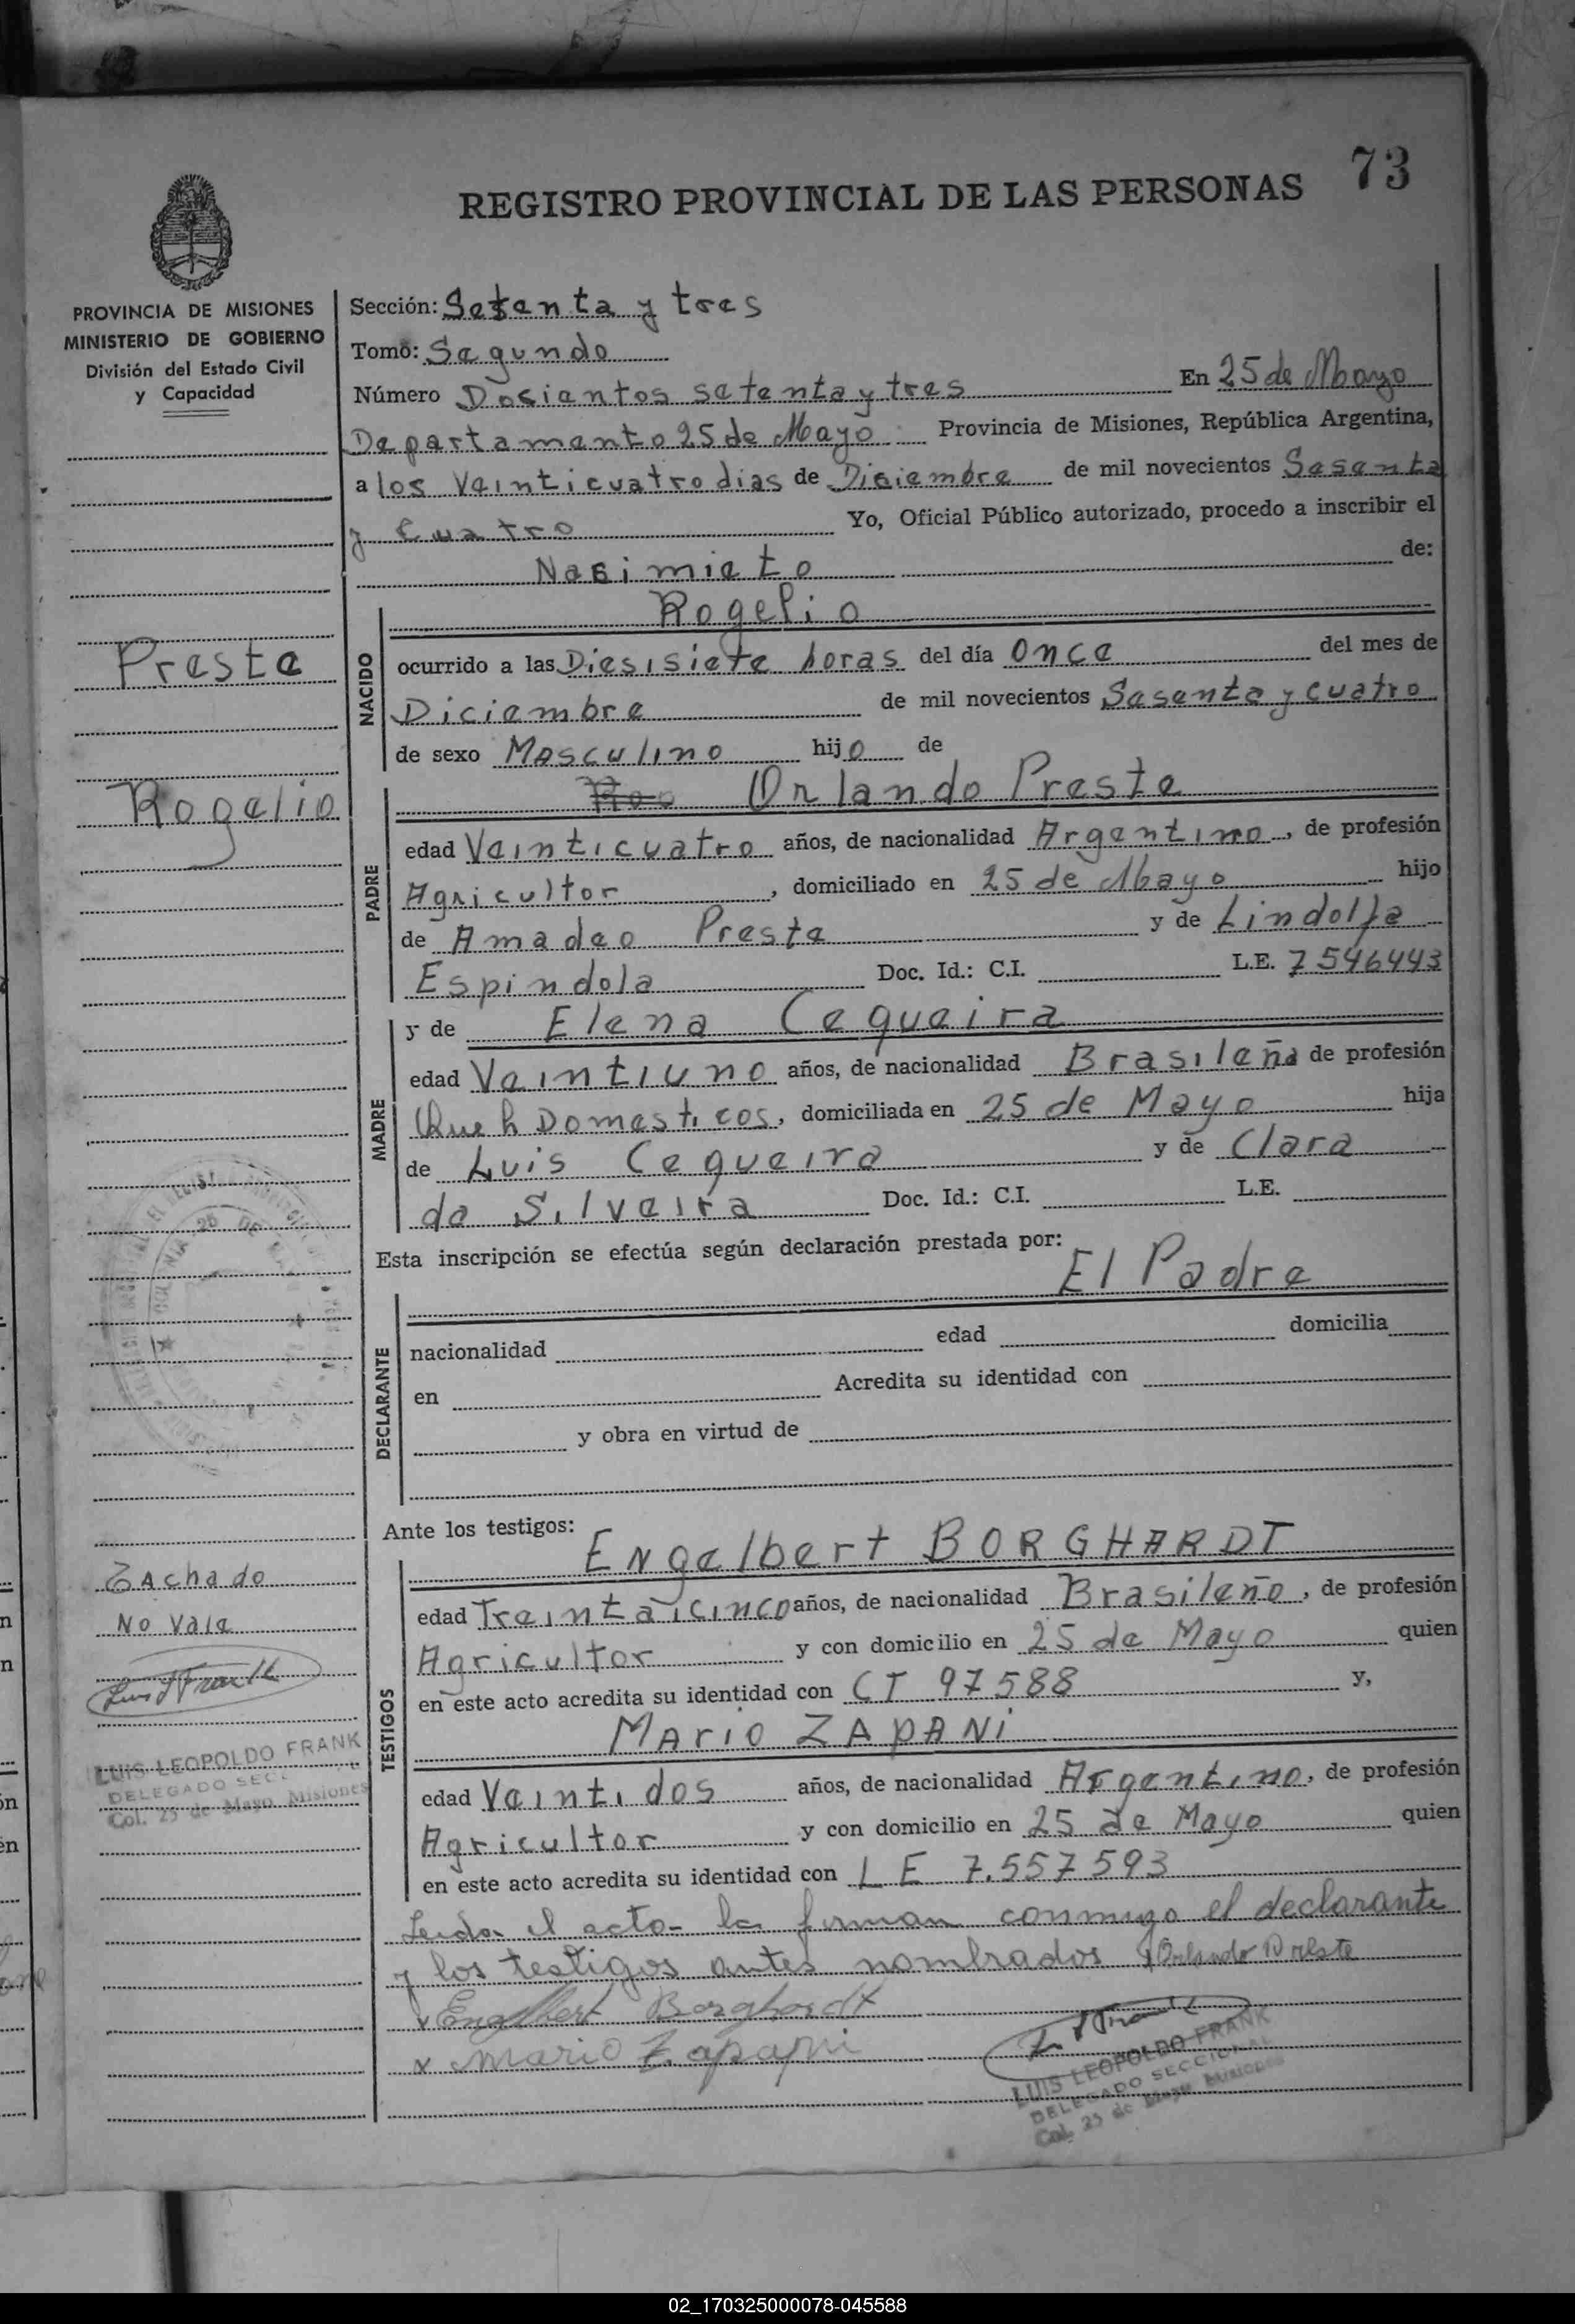 73
REGISTRO PROVINCIAL DE LAS PERSONAS
PROVINCIA DE MISIONES
MINISTERIO DE GOBIERNO
División del Estado Civil
y Capacidad
Preste
Rogelio
Tachado
No Vale
LUIS LEOPOLDO FRANK
DELEGADO SEC
Col. 25 de Mayo Misiones
Sección: Setenta y tres
Tomo: Segundo
Número Docientos setenta y tres En 25 de Mayo
Departamento 25 de Mayo Provincia de Misiones, República Argentina,
a los Veinticuatro dias de Diciembre de mil novecientos Sesenta
y Cuatro Yo, Oficial Público autorizado, procedo a inscribir el
Nacimieto de:
NACIDO
Rogelio
ocurrido a las Diesisiete horas del día Once del mes de
Diciembre de mil novecientos Sesenta y cuatro
de sexo Masculino hijo de
PADRE
Roo Orlando Preste
edad Veinticuatro años, de nacionalidad Argentino, de profesión
Agricultor, domiciliado en 25 de Mayo hijo
de Amadeo Preste y de Lindolfa
Espindola Doc. Id.: C.I. L.E. 7546443
MADRE
y de Elena Cequeira
edad Veintiuno años, de nacionalidad Brasileña de profesión
Queh Domesticos, domiciliada en 25 de Mayo hija
de Luis Cequeira y de Clara
da Silveira Doc. Id.: C.I. L.E.
Esta inscripción se efectúa según declaración prestada por:
El Padre
DECLARANTE
nacionalidad edad domicilia
en Acredita su identidad con
y obra en virtud de
Ante los testigos:
TESTIGOS
Engelbert BORGHARDT
edad Treintaicinco años, de nacionalidad Brasileño, de profesión
Agricultor y con domicilio en 25 de Mayo quien
en este acto acredita su identidad con CI 97588 y,
Mario ZAPANi
edad Veintidos años, de nacionalidad Argentino, de profesión
Agricultor y con domicilio en 25 de Mayo quien
en este acto acredita su identidad con LE 7.557593
Leida el acta la firman conmigo el declarante
y los testigos antes nombrados x Orlando Preste
x Engelbert Borghardt
x Mario Zapani
LUIS LEOPOLDO FRANK
DELEGADO SECCIONAL
Col. 25 de Mayo Misiones
02_170325000078-045588